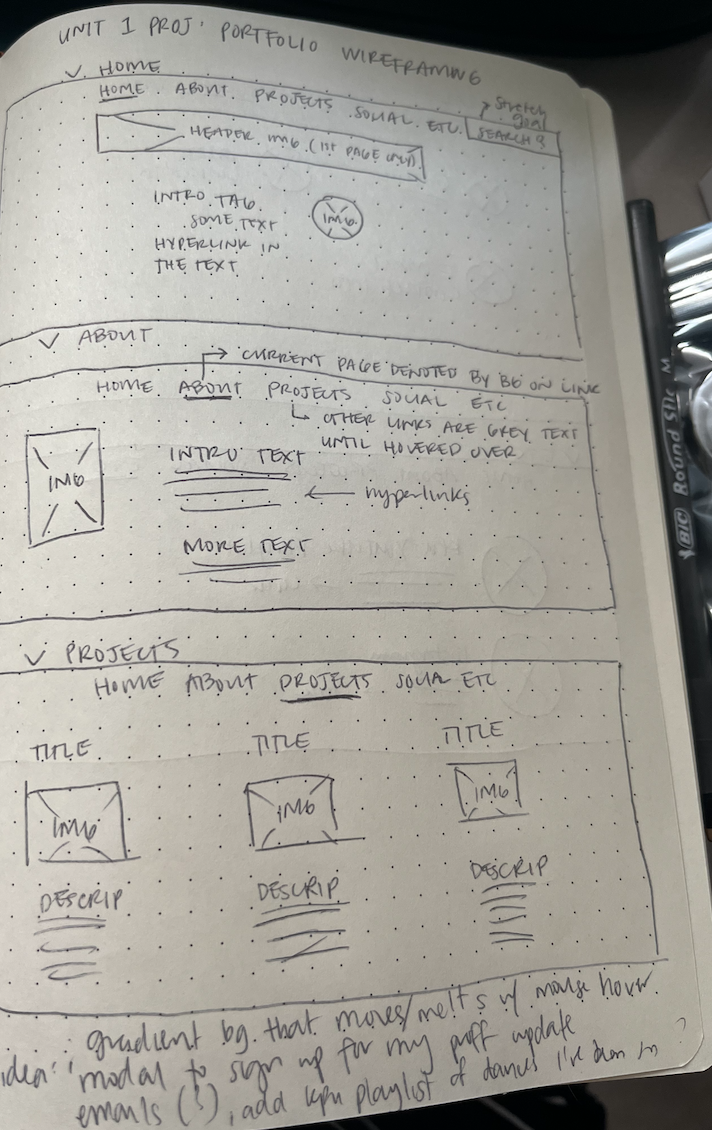 UNIT 1 PROJ' PORTFOLIO WIREFRAMING
✓ HOME
HOME ABOUT PROJECTS SOCIAL ETC. SEARCH
→ Stretch goal
HEADER IMG (1ST PAGE ONLY)
INTRO TAG
SOME TEXT
HYPERLINK IN
THE TEXT
IMG
✓ ABOUT
→ CURRENT PAGE DENOTED BY BG ON LINK
HOME ABOUT PROJECTS SOCIAL ETC
OTHER LINKS ARE GREY TEXT
UNTIL HOVERED OVER
IMG
INTRO TEXT
← hyperlinks
MORE TEXT
✓ PROJECTS
HOME ABOUT PROJECTS SOCIAL ETC
TITLE TITLE TITLE
IMG IMG IMG
DESCRIP DESCRIP DESCRIP
gradient bg. that moves/melts w/ mouse hover
idea: modal to sign up for my perf update
emails (?), add playlist of dances I've been in ?
BIC Round Stic M